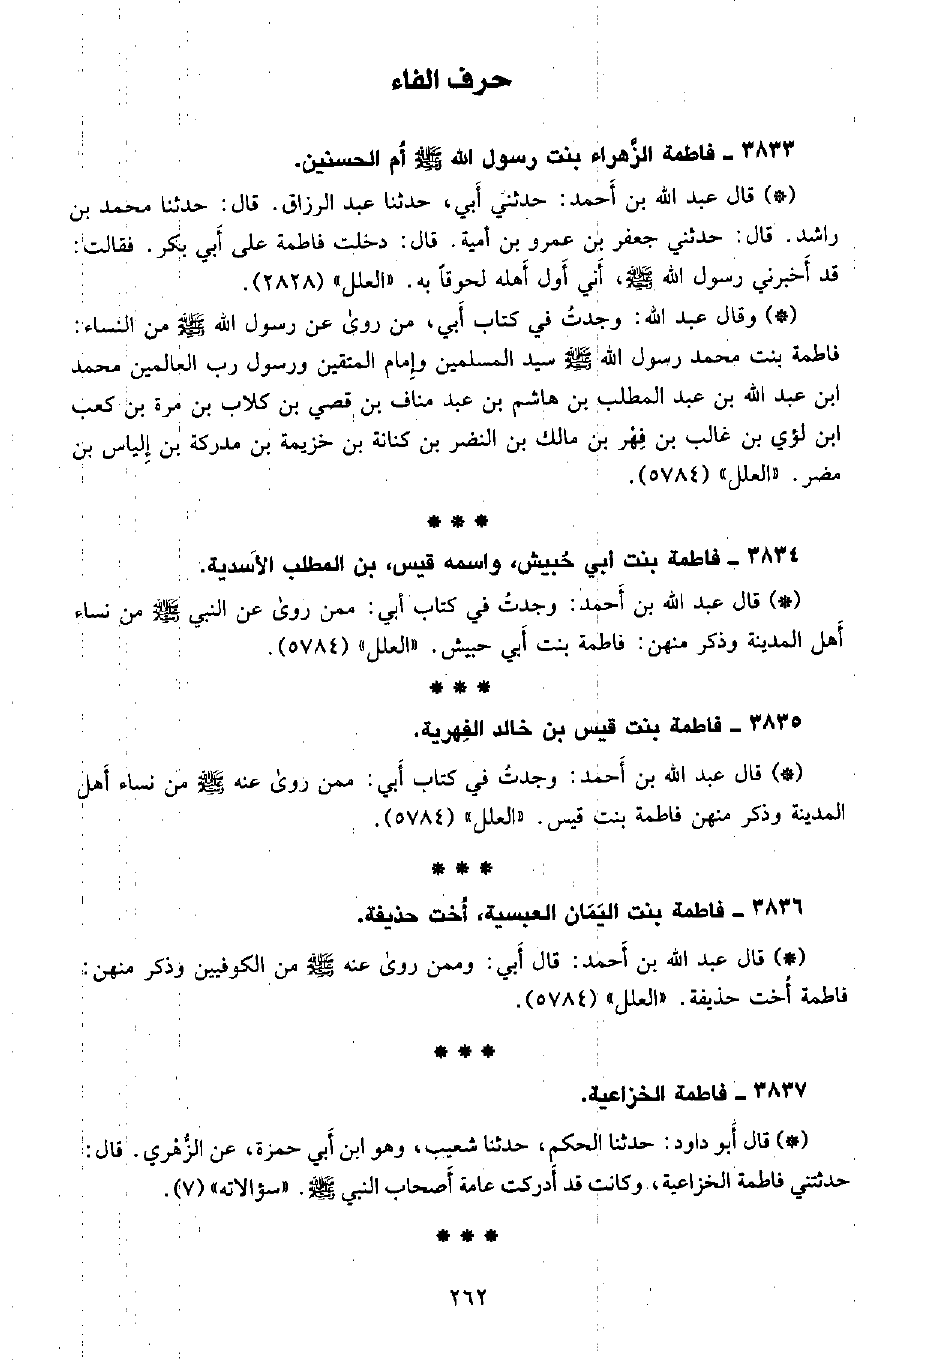 حرف الفاء
٣٨٣٣ ـ فاطمة الزَّهراء بنت رسول الله ﷺ أُم الحسنين.
(*) قال عبد الله بن أَحمد: حدثني أَبي، حدثنا عبد الرزاق. قال: حدثنا محمد بن
راشد. قال: حدثني جعفر بن عمرو بن أمية. قال: دخلت فاطمة على أَبي بكر. فقالت:
قد أَخبرني رسول الله ﷺ، أَني أول أَهله لحوقاً به. «العلل» (٢٨٢٨).
(*) وقال عبد الله: وجدتُ في كتاب أَبي، من روىٰ عن رسول الله ﷺ من النساء:
فاطمة بنت محمد رسول الله ﷺ سيد المسلمين وإمام المتقين ورسول رب العالمين محمد
ابن عبد الله بن عبد المطلب بن هاشم بن عبد مناف بن قصي بن كلاب بن مرة بن كعب
ابن لؤي بن غالب بن فِهْر بن مالك بن النضر بن كنانة بن خزيمة بن مدركة بن إِلياس بن
مضر. «العلل» (٥٧٨٤).
* * *
٣٨٣٤ ـ فاطمة بنت أبي حُبيش، واسمه قيس، بن المطلب الأَسدية.
(*) قال عبد الله بن أَحمد: وجدتُ في كتاب أبي: ممن روىٰ عن النبي ﷺ من نساء
أَهل المدينة وذكر منهن: فاطمة بنت أَبي حبيش. «العلل» (٥٧٨٤).
* * *
٣٨٣٥ ـ فاطمة بنت قيس بن خالد الفِهرية.
(*) قال عبد الله بن أَحمد: وجدتُ في كتاب أَبي: ممن روىٰ عنه ﷺ من نساء أَهل
المدينة وذكر منهن فاطمة بنت قيس. «العلل» (٥٧٨٤).
* * *
٣٨٣٦ ـ فاطمة بنت اليَمَان العبسية، أُخت حذيفة.
(*) قال عبد الله بن أَحمد: قال أَبي: وممن روىٰ عنه ﷺ من الكوفيين وذكر منهن:
فاطمة أُخت حذيفة. «العلل» (٥٧٨٤).
* * *
٣٨٣٧ ـ فاطمة الخزاعية.
(*) قال أَبو داود: حدثنا الحكم، حدثنا شعيب، وهو ابن أَبي حمزة، عن الزُّهْري. قال:
حدثتني فاطمة الخزاعية، وكانت قد أَدركت عامة أَصحاب النبي ﷺ. «سؤالاته» (٧).
* * *
٢٦٢